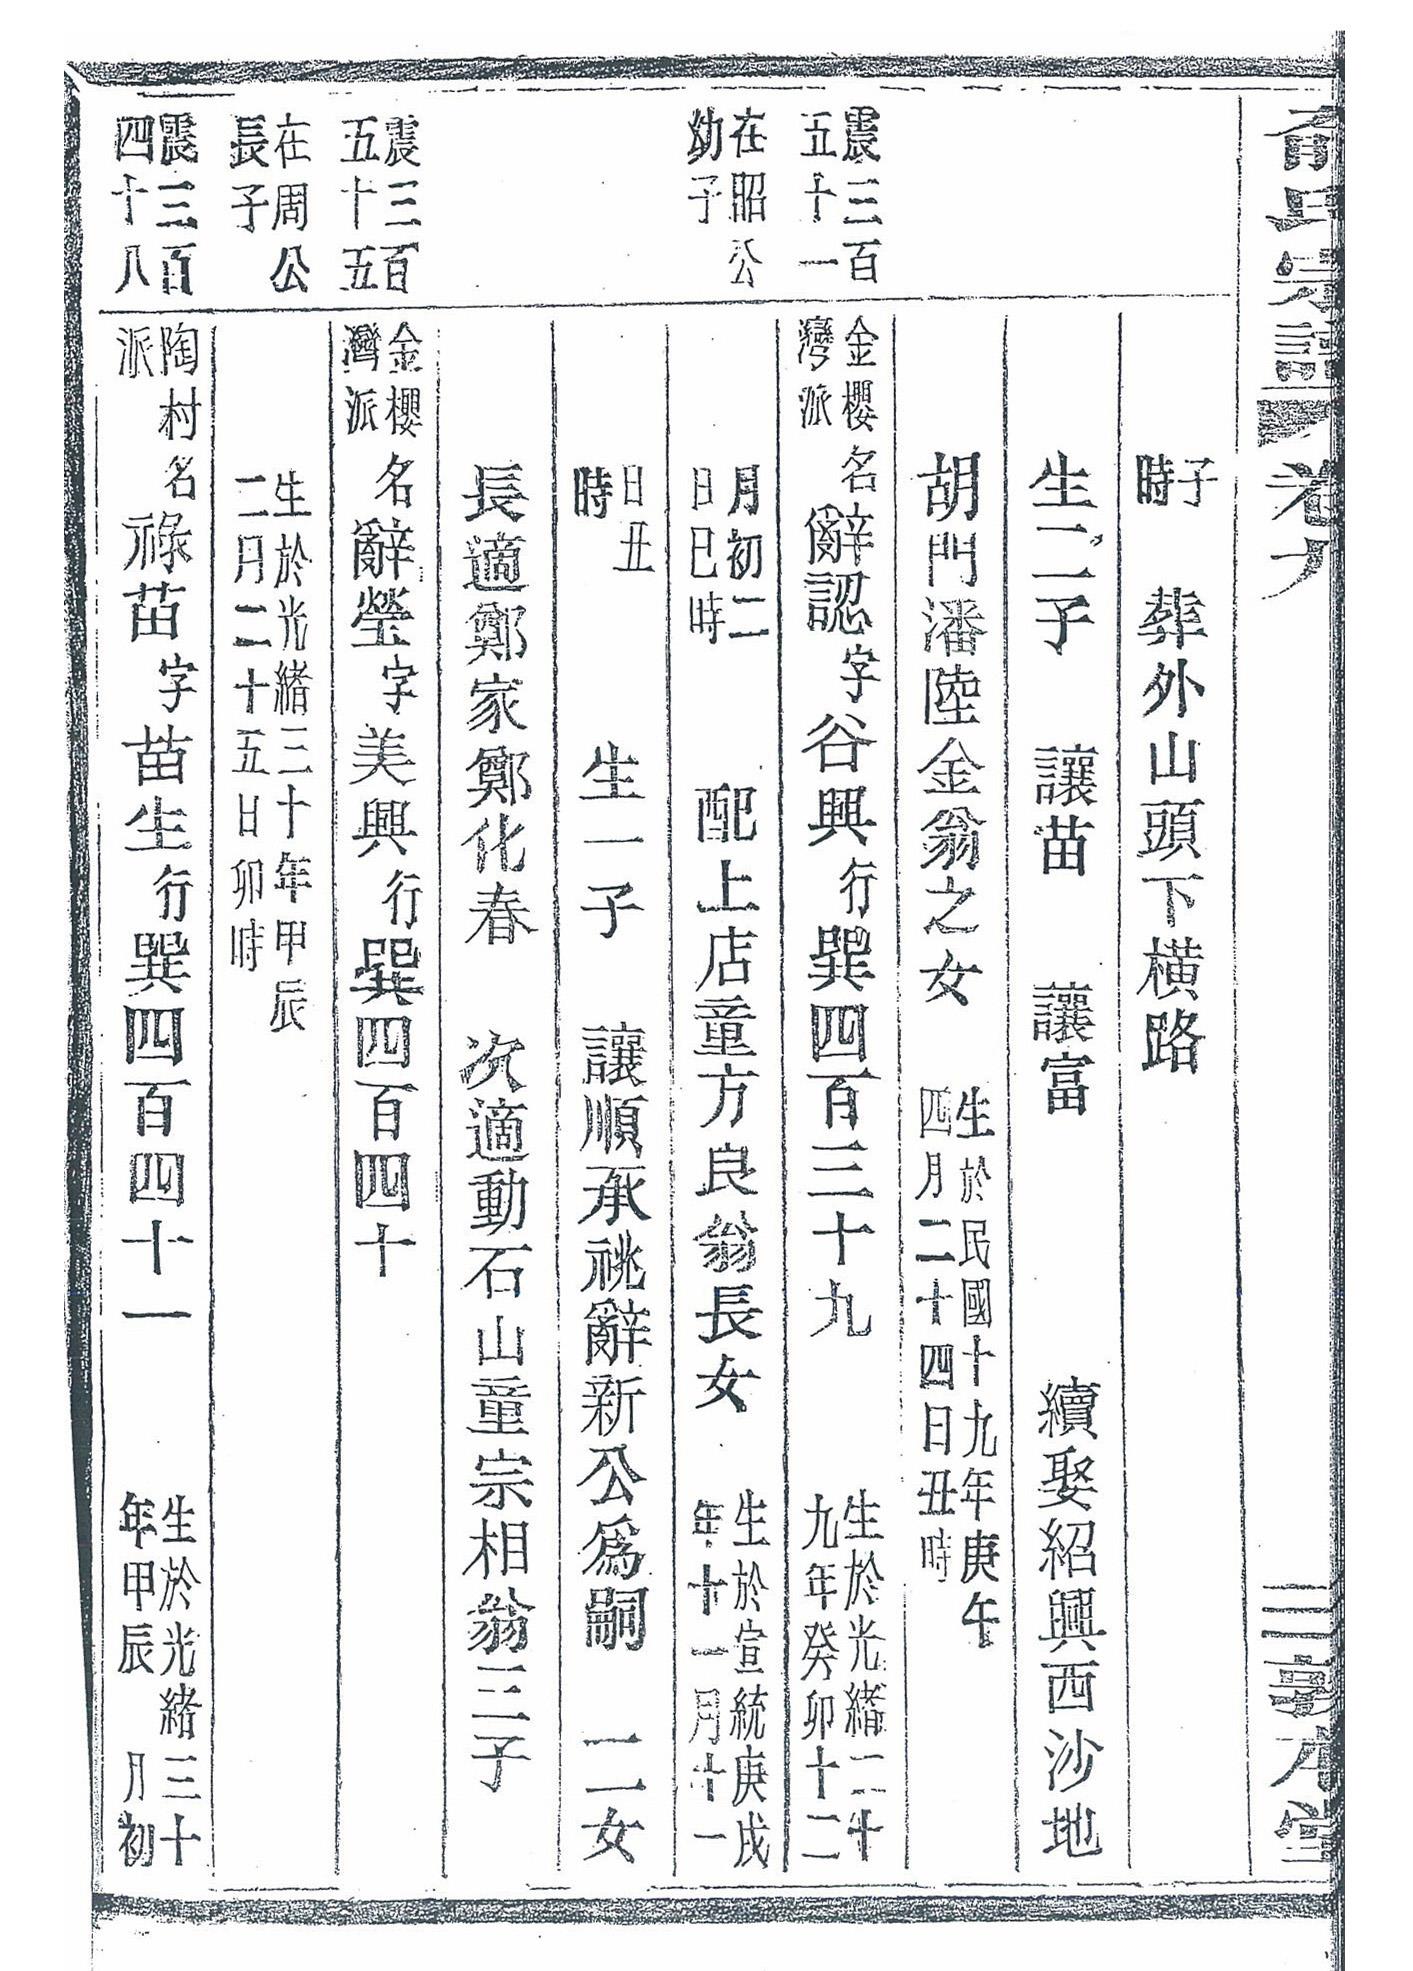 俞氏宗譜 卷九 三 敦本堂
子時 葬外山頭下橫路
生二子 讓苗 讓富 續娶紹興西沙地
胡門潘陸金翁之女 生於民國十九年庚午四月二十四日丑時
震三百五十一 金櫻灣派 名辭認字谷興行巽四百三十九 生於光緒二十九年癸卯十二
在昭公幼子 月初二日巳時 配上店童方良翁長女 生於宣統庚戌年十一月十一
日丑時 生一子 讓順承祧辭新公為嗣 二女
長適鄭家鄭化春 次適動石山童宗相翁三子
震三百五十五 金櫻灣派 名辭瑩字美興行巽四百四十
在周公長子 生於光緒三十年甲辰二月二十五日卯時
震三百四十八 陶村派 名祿苗字苗生行巽四百四十一 生於光緒三十年甲辰 月初